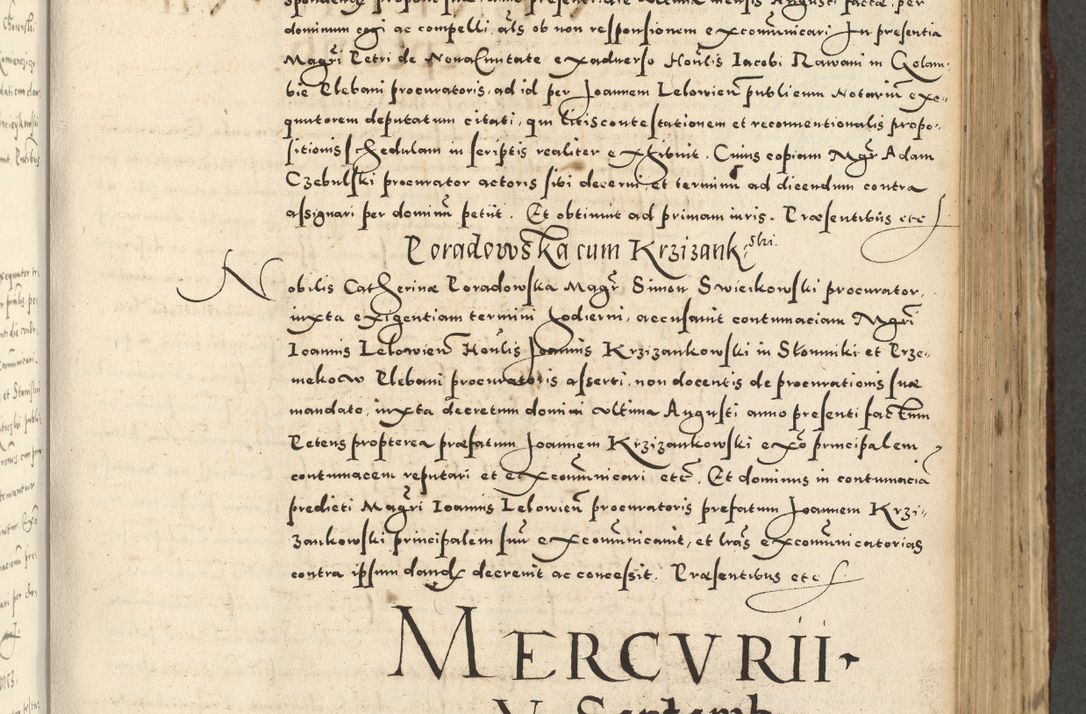 dominum cogi ac compelli, als ob non responsionem excomunicari In presentia
Magri Petri de Nova Civitate ex adverso Honlis Iacobi Rawani in Golam-
bie Plebani procuratoris, ad id per Joannem Lelowien publicum Notarium exe-
quutorem deputatum citati, qui litiscontestationem et reconventionalis propo-
sitionis schedulam in scriptis realiter exhibuit. Cuius copiam Mgr Adam
Czebulski procurator actoris sibi decerni et terminu ad dicendum contra
assignari per dominu petiit. Et obtinuit ad primam iuris. Præsentibus etc
Poradowska cum Krzizankski
Nobilis Catherinæ Poradowska Magr Simon Swieikowski procurator,
iuxta exigentiam termini hodierni, accusavit contumaciam Mgri
Ioannis Lelowien Honlis Joannis Krzizankowski in Slomniki et Prze-
mekow Plebani procuratoris asserti, non docentis de procurationis suæ
mandato, iuxta decretum domini ultima Augusti anno presenti factum
Petens propterea præfatum Joannem Krzizankowski exo principalem
contumacem reputari et excomunicari etc. Et dominus in contumacia
predicti Magri Ioannis Lelowien procuratoris prefatum Joannem Krzi-
zankowski principalem suu excomunicavit, et lras excomunicatorias
contra ipsum dand decrevit ac concessit. Præsentibus etc
MERCVRII
V Septemb